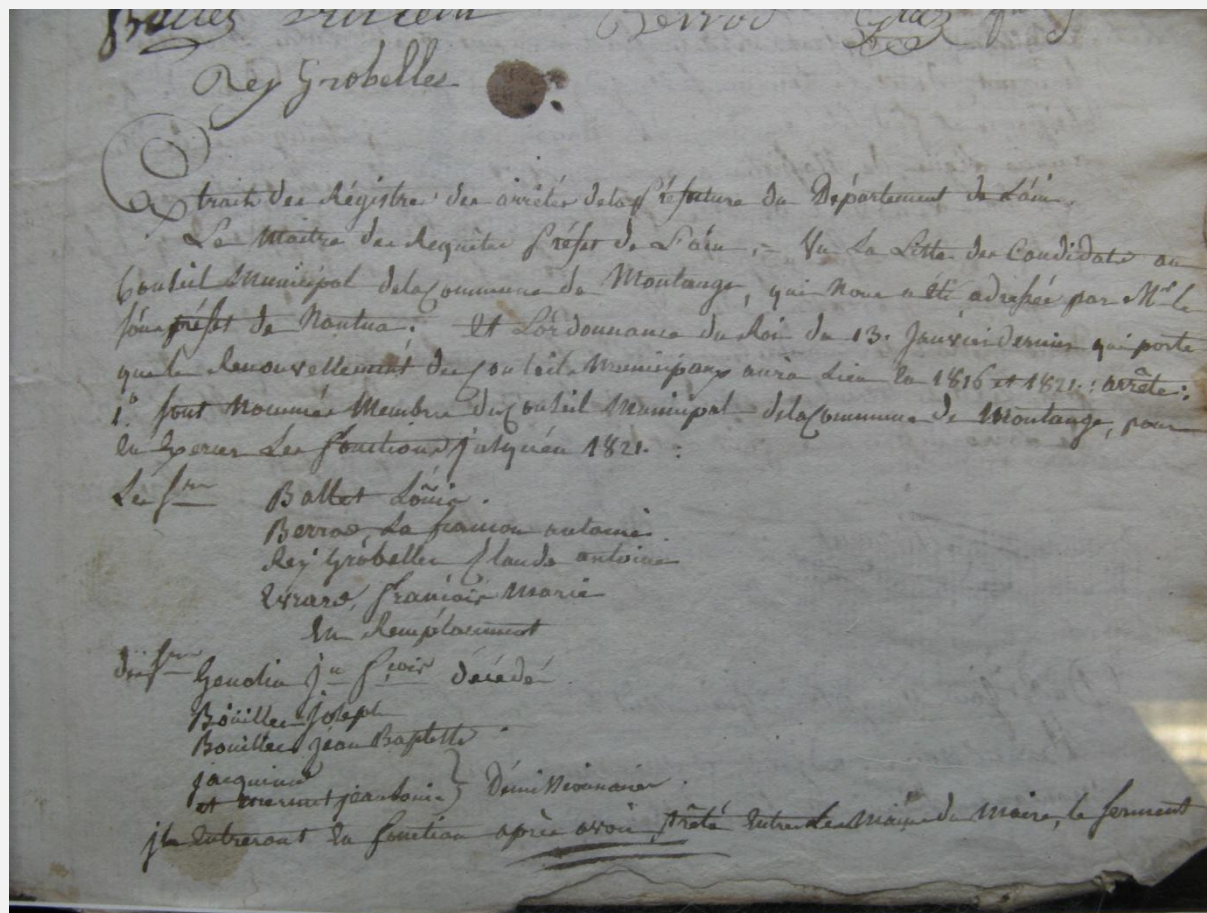 Berrod
Rey Grobellet
Extrait des Régistres des arrêtés de la Préfecture du Département de L'ain.
Le Maitre des Requêtes Préfet de L'ain, = Vu La Liste des Candidats au
Conseil Municipal de la Commune de Montange, qui Nous a été adressée par Mr le
sous préfet de Nantua. Et L'ordonnance du Roi du 13. Janvier dernier qui porte
que le Renouvellement des Conseils Municipaux aura Lieu en 1816 et 1821. arrête:
1° sont Nommés Membres du Conseil Municipal de la Commune de Montange, pour
en Exercer Les fonctions jusqu'en 1821. :
Les Srs Ballet Loüis.
Berrod La framon antoine.
Rey Grobellet Claude antoine
Evrard, françois Marie
En Remplacement
des Srs Gendin jn fçois décédé.
Boüiller joseph
Bouiller jean Baptiste
jacquinod
et mermet jean Louis } Démissionnaires.
jls Entreront En fonction après avoir prêté Entre Les Mains du Maire, le serment